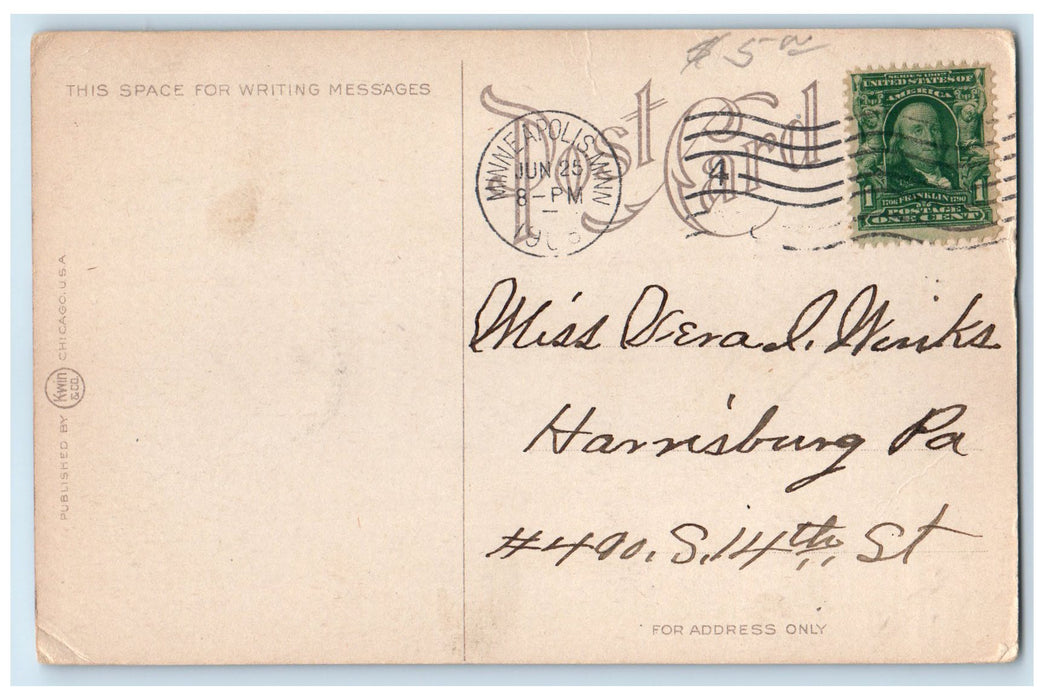 $5.00
THIS SPACE FOR WRITING MESSAGES
Post Card
MINNEAPOLIS MINN
JUN 25
8-PM
4
SERIES 1902
UNITED STATES OF
AMERICA
1 1
1706 FRANKLIN 1790
POSTAGE
ONE CENT
Miss Vera I. Winks
Harrisburg Pa
#490. S. 14th St
PUBLISHED BY Kwin & CO. CHICAGO. U.S.A
FOR ADDRESS ONLY